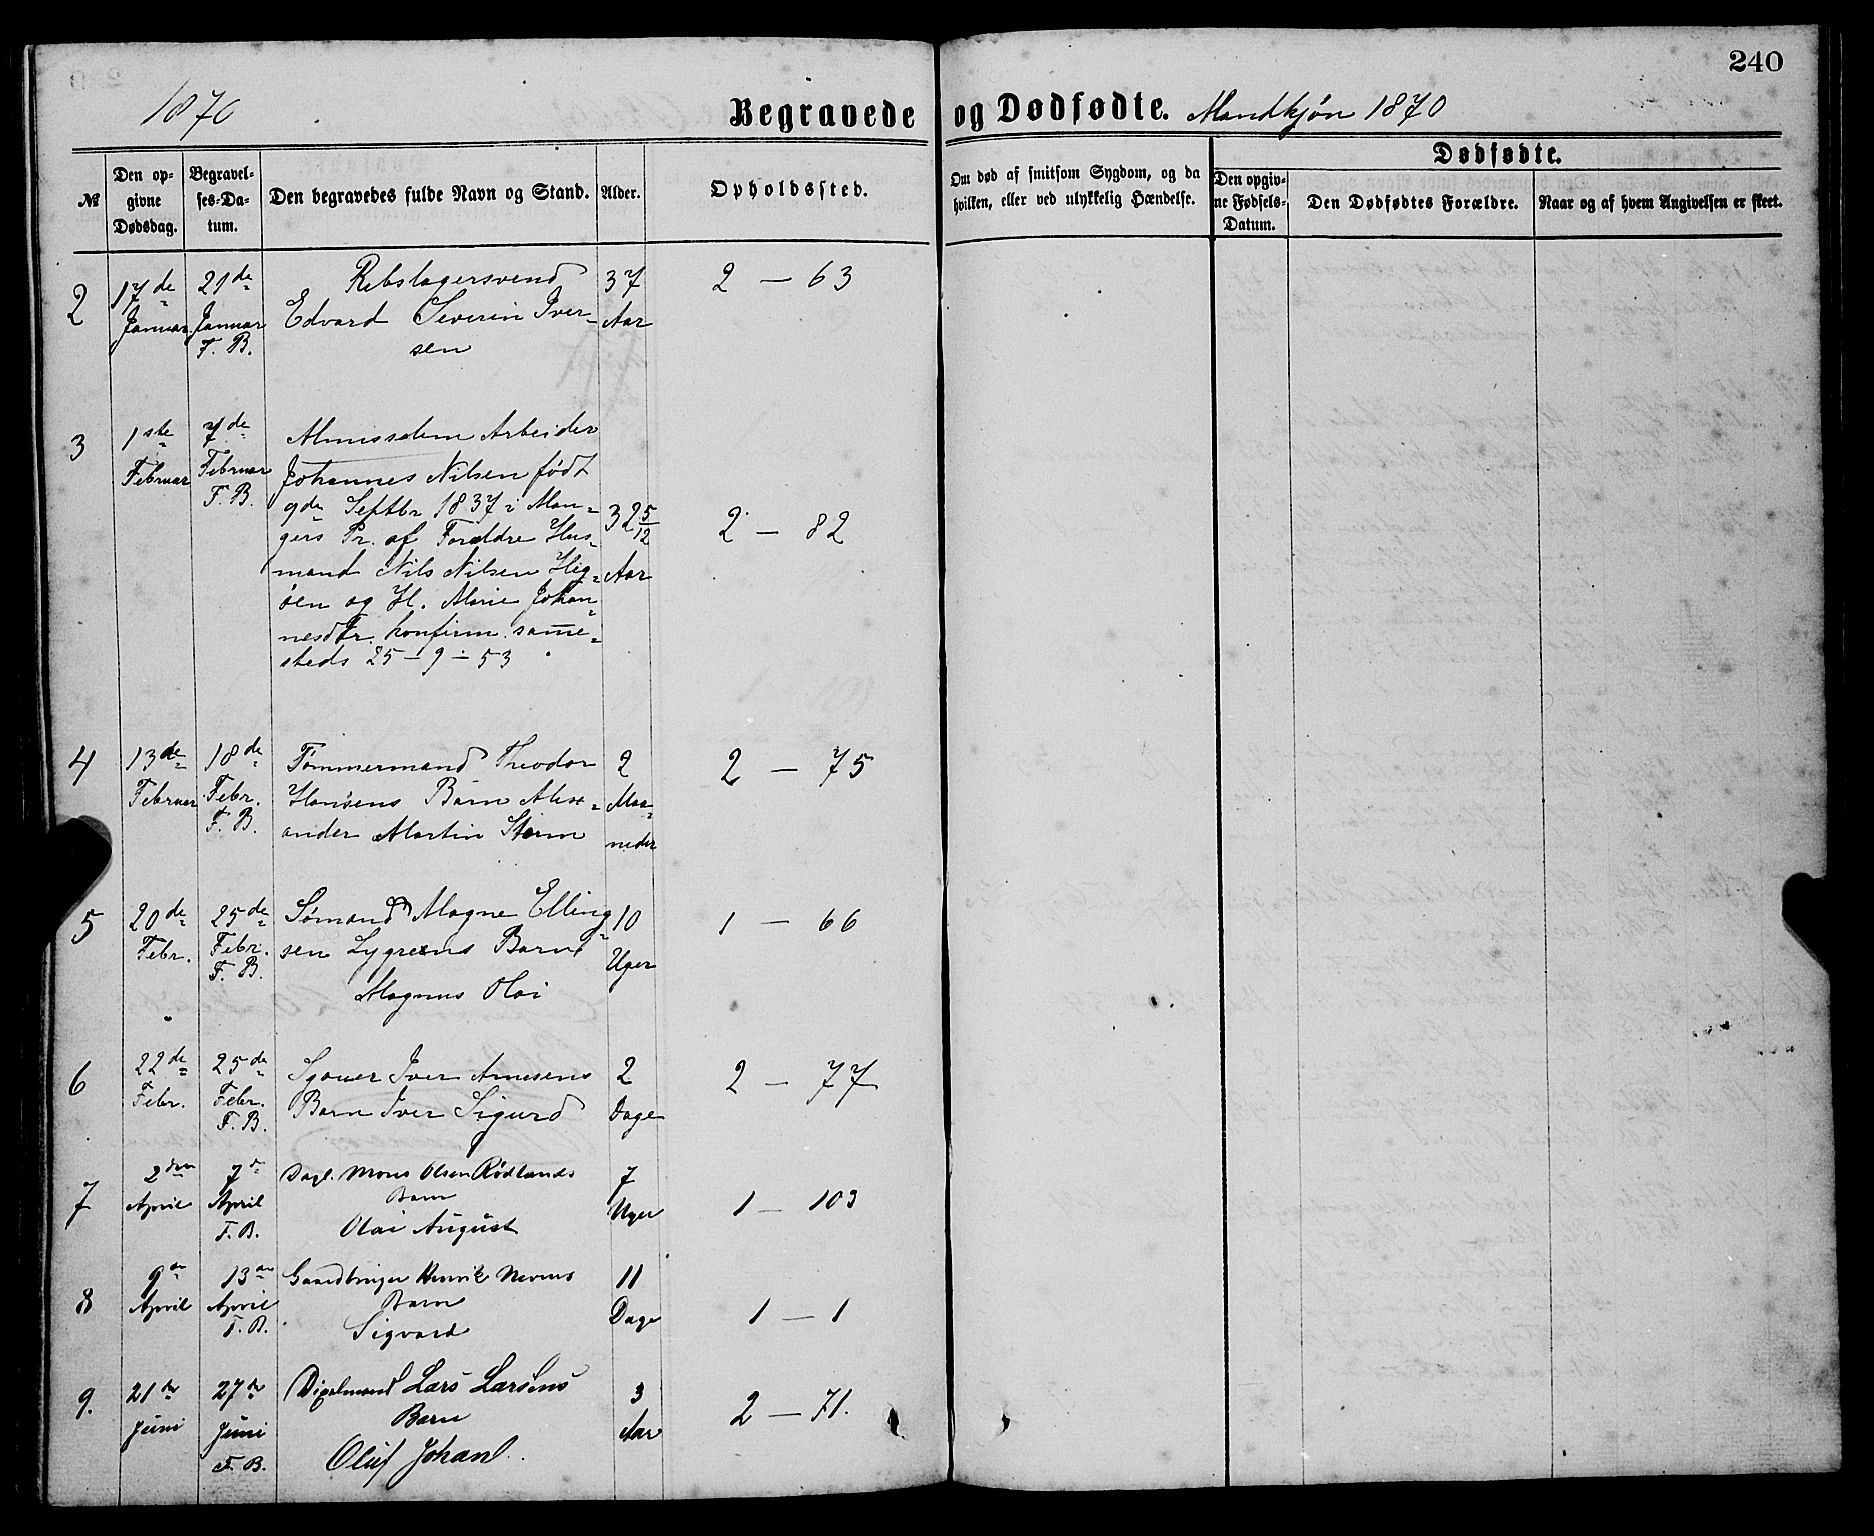 240
1870
Begravede og Dødfødte. Mandkjøn 1870
№
Den op-
givne
Dødsdag.
Begravel-
ses-Da-
tum.
Den begravedes fulde Navn og Stand.
Alder.
Opholdssted.
Om død af smitsom Sygdom, og da
hvilken, eller ved ulykkelig Hændelse.
Dødfødte.
Den opgiv-
ne Fødsels-
Datum.
Den Dødfødtes Forældre.
Naar og af hvem Angivelsen er skeet.
2
17de
Januar
21de
Januar
F. B.
Rebslagersvend
Edvard Severin Iver-
sen
37
Aar
2 — 63
3
1ste
Februar
7de
Februar
F. B.
Almisselem Arbeider
Johannes Nilsen født
9de Septbr 1837 i Man=
gers Pr. af Foreldre Hus=
mand Nils Nilsen
øen og H. Marie Johan=
nesdtr. konfirm. same=
steds 25-9-53
32 5/12
Aar
2 — 82
4
13de
Februar
18de
Febr.
F. B.
Tømmermand Theodor
Hansens Barn Alex=
ander Martin Storm
2
Maa=
neder
2 — 75
5
20de
Febr.
25de
Febr.
F. B.
Sømand Magne Elling=
sen Lygrens Barn
Magnus Olai
10
Uger
1 — 66
6
22de
Febr.
25de
Febr.
F. B.
Sjouer Iver Arnesens
Barn Iver Sigurd
2
Dage
2 — 77
7
2den
April
7de
April
F. B.
Dagl. Mons Olsen Rødlands
Barn
Olai August
7
Uger
1 — 103
8
9de
April
13de
April
F. B.
Gaardbruger Henrik
Barn
Sigvard
11
Dage
1 — 1
9.
21de
Juni
27de
Juni
F. B.
Lars Larsens
Barn
Oluf Johan
3
Aar
2 — 71.